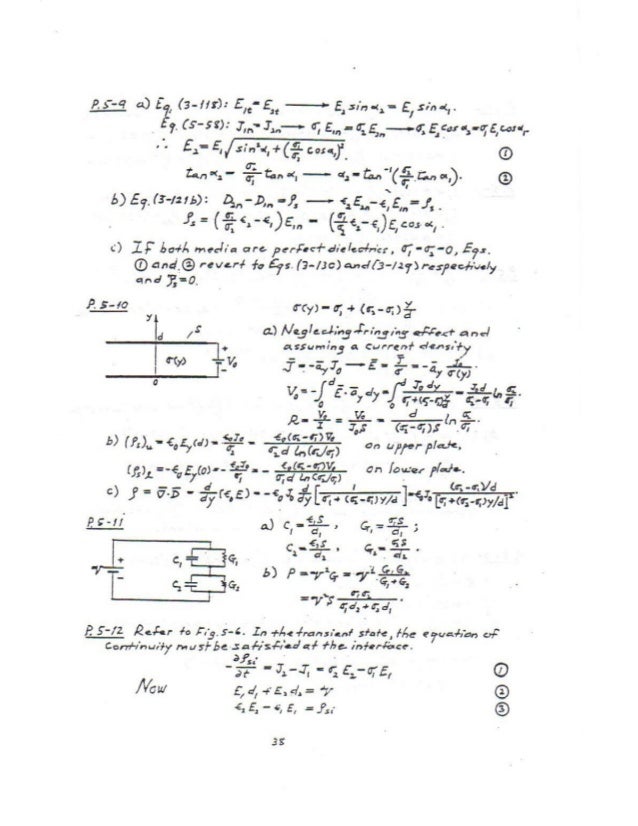 P.5-9 a) Eq. (3-118): E₁t = E₂t ⟶ E₂ sin α₂ = E₁ sin α₁.
Eq. (5-58): J₁n = J₂n ⟶ σ₁ E₁n = σ₂ E₂n ⟶ σ₂ E₂ cos α₂ = σ₁ E₁ cos α₁.
∴ E₂ = E₁ √(sin²α₁ + (σ₁/σ₂ cos α₁)²). ①
tan α₂ = σ₂/σ₁ tan α₁ ⟶ α₂ = tan⁻¹(σ₂/σ₁ tan α₁). ②
b) Eq. (3-121b): D₂n - D₁n = ρs ⟶ ε₂ E₂n - ε₁ E₁n = ρs.
ρs = (σ₁/σ₂ ε₂ - ε₁) E₁n = (σ₁/σ₂ ε₂ - ε₁) E₁ cos α₁.
c) If both media are perfect dielectrics, σ₁ = σ₂ = 0, Eqs.
① and ② revert to Eqs. (3-130) and (3-129) respectively
and ρs = 0.
P.5-10 σ(y) = σ₁ + (σ₂ - σ₁) y/d
y d S σ(y) + - V₀ 0
a) Neglecting fringing effect and
assuming a current density
J̄ = -āy J₀ ⟶ Ē = J̄/σ = -āy J₀/σ(y).
V₀ = -∫₀ᵈ Ē·āy dy = ∫₀ᵈ J₀ dy/(σ₁ + (σ₂ - σ₁) y/d) = J₀d/(σ₂ - σ₁) ln σ₂/σ₁
R = V₀/I = V₀/(J₀S) = d/((σ₂ - σ₁)S) ln σ₂/σ₁.
b) (ρs)u = ε₀Ey(d) = ε₀J₀/σ₂ = ε₀(σ₂ - σ₁)V₀/(σ₂ d ln(σ₂/σ₁)) on upper plate,
(ρs)ℓ = -ε₀Ey(0) = -ε₀J₀/σ₁ = - ε₀(σ₂ - σ₁)V₀/(σ₁ d ln(σ₂/σ₁)) on lower plate.
c) ρ = ∇̄·D̄ = d/dy (ε₀E) = -ε₀J₀ d/dy [1/(σ₁ + (σ₂ - σ₁)y/d)] = ε₀J₀ (σ₂ - σ₁)/d / [σ₁ + (σ₂ - σ₁)y/d]²
P.5-11 a) C₁ = ε₁S/d₁, G₁ = σ₁S/d₁;
C₂ = ε₂S/d₂, G₂ = σ₂S/d₂.
𝒱 + - C₁ G₁ C₂ G₂
b) P = 𝒱²G = 𝒱² G₁G₂/(G₁ + G₂)
= 𝒱²S σ₁σ₂/(σ₁d₂ + σ₂d₁)
P.5-12 Refer to Fig. 5-6. In the transient state, the equation of
Continuity must be satisfied at the interface.
-∂ρsi/∂t = J₂ - J₁ = σ₂ E₂ - σ₁ E₁ ①
Now E₁d₁ + E₂d₂ = 𝒱 ②
ε₂ E₂ - ε₁ E₁ = ρsi ③
38